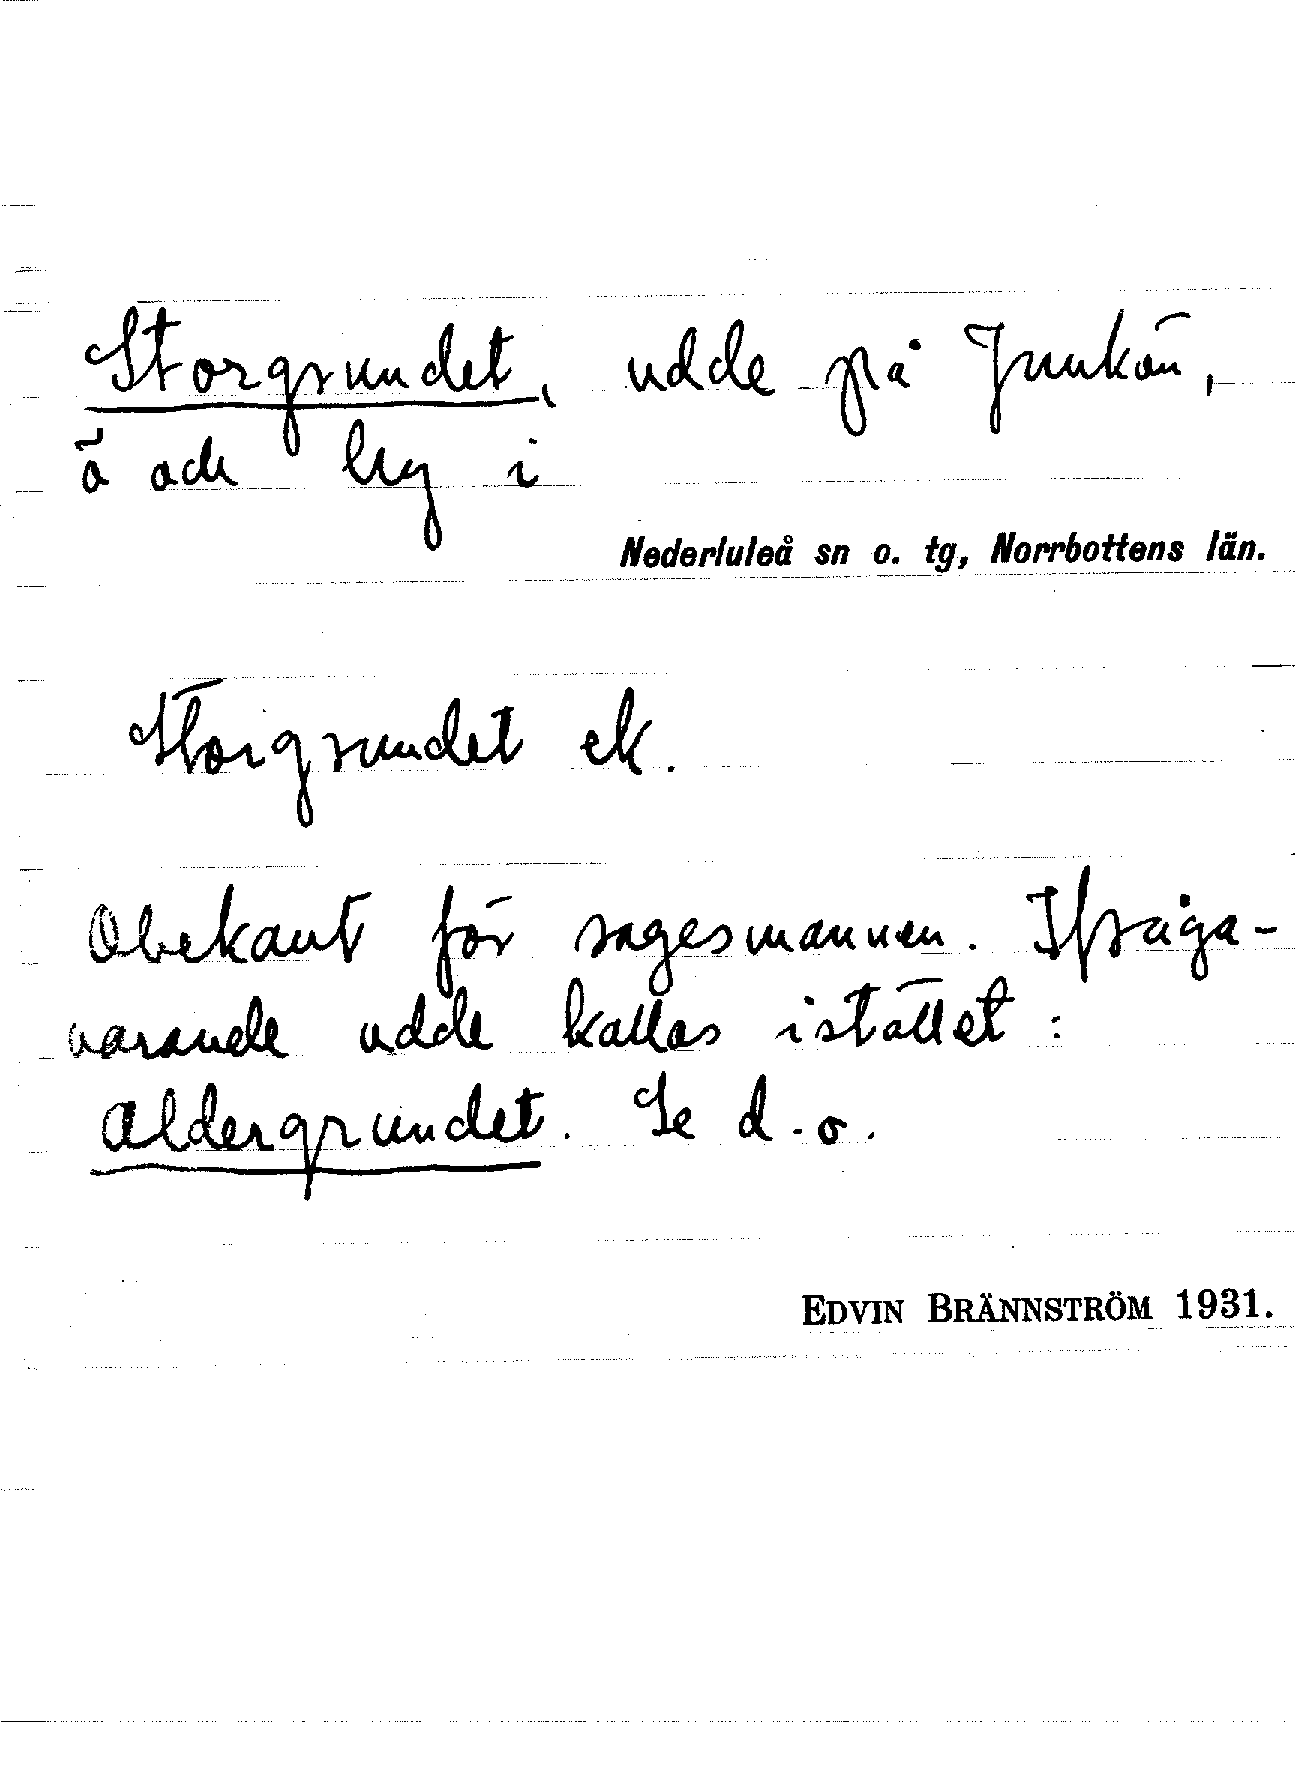 Storgrundet, udde på Junkön,
ö och lhg i
Nederluleå sn o. tg, Norrbottens län.
Storgrundet ek.
Obekant för sagesmannen. Ifråga-
varande udde kallas istället:
Aldergrundet. Se d.o.
EDVIN BRÄNNSTRÖM 1931.